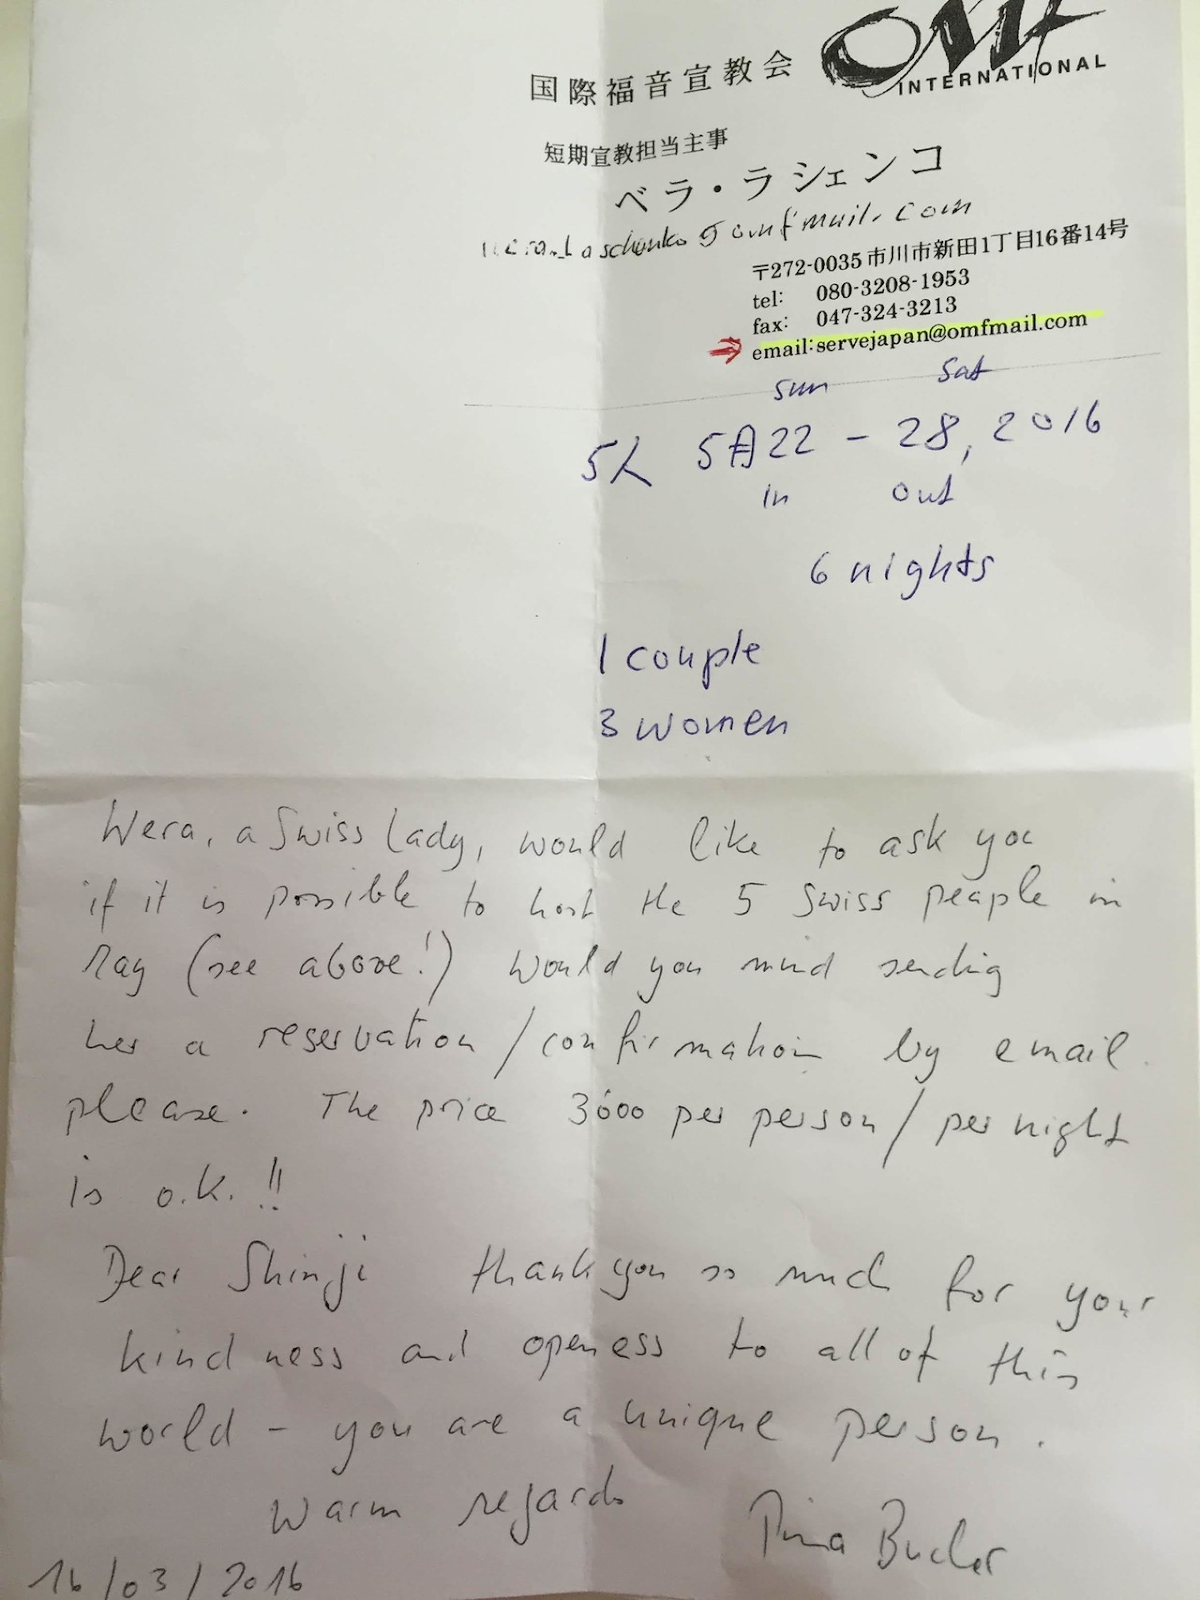 OMF
INTERNATIONAL
国際福音宣教会
短期宣教担当主事
ベラ・ラシェンコ
omfmail.com
〒272-0035 市川市新田1丁目16番14号
tel: 080-3208-1953
fax: 047-324-3213
email:servejapan@omfmail.com
sun sat
5人 5月22 - 28, 2016
in out
6 nights
1 couple
3 women
Wera, a Swiss lady, would like to ask you
if it is possible to host the 5 Swiss peaple in
May (see above!) Would you mind sending
her a reservation/confirmation by email
please. The price 3600 per person/per night
is o.k.!!
Dear Shinji thank you so much for your
kindness and openess to all of this
world - you are a unique person.
Warm regards
Bucher
16/03/2016